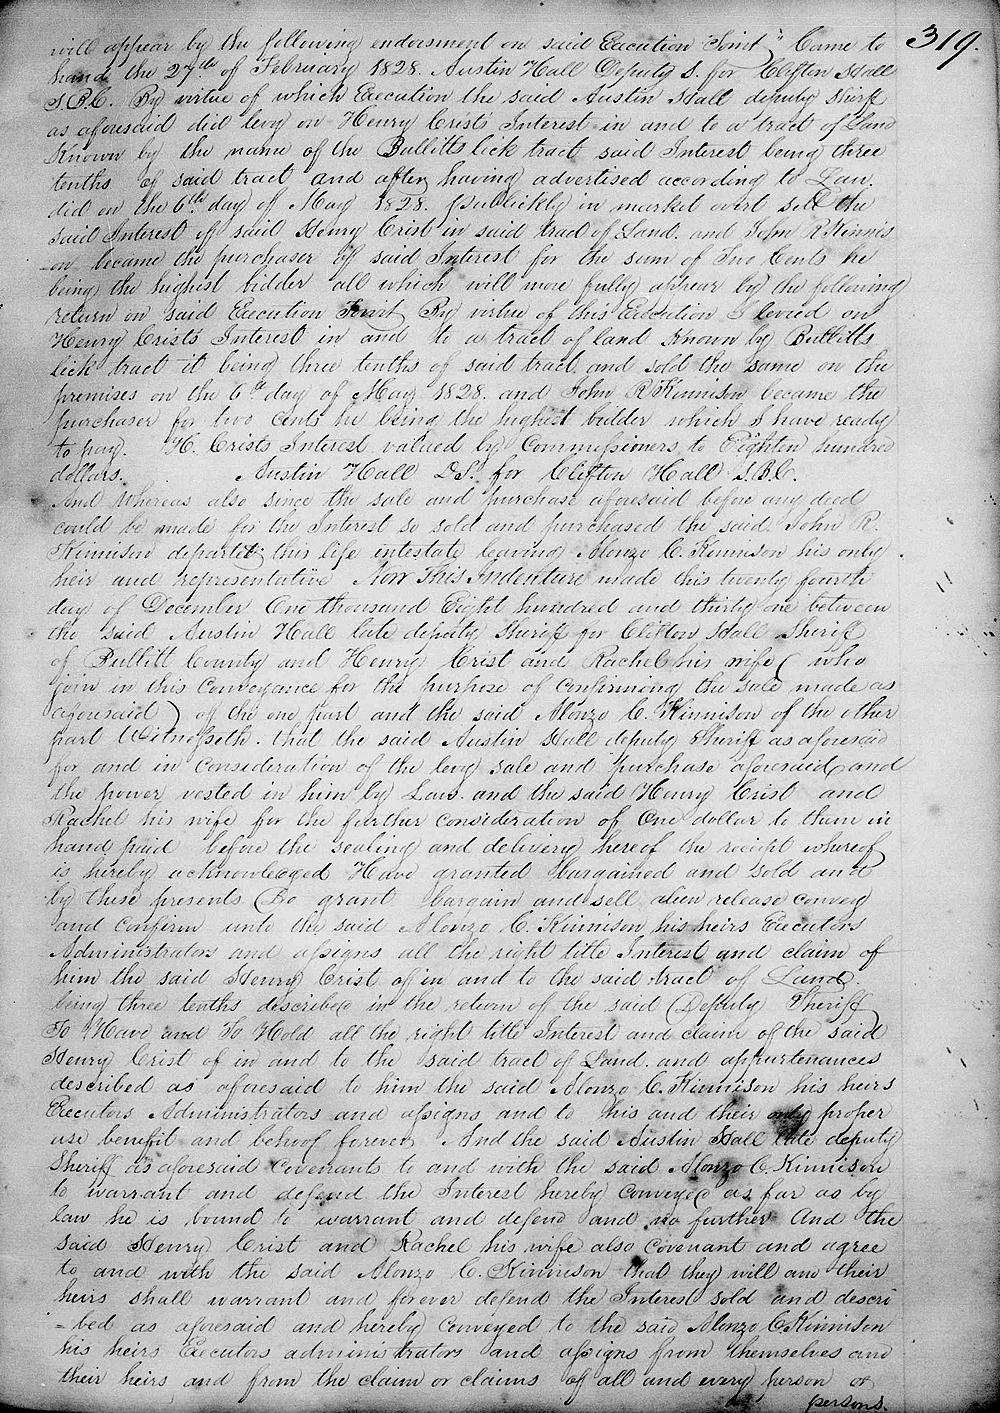 319.
will appear by the following endorsment on said Execution Towit, "Came to
hand the 27th of February 1828. Austin Hall Deputy S. for Clifton Hall
S.B.C. By virtue of which Execution the said Austin Hall deputy Shirff
as aforesaid did levy on Henry Crists Interest in and to a tract of Land
Known by the name of the Bullitts lick tract said Interest being three
tenths of said tract and after having advertised according to Law.
did on the 6th day of May 1828. publickly in market overt sell the
said Interest of said Henry Crist in said tract of Land. and John R Kinnis
-on became the purchaser of said Interest for the sum of Two Cents he
being the highest bidder all which will more fully appear by the following
return on said Execution Towit, By virtue of this Execution I levied on
Henry Crists Interest in and to a tract of land Known by Bullitts
lick tract it being three tenths of said tract and sold the same on the
premises on the 6th day of May 1828. and John R Kinnison became the
purchaser for two cents he being the highest bidder which I have ready
to pay. H. Crists Interest valued by Commissioners to Eighten hundred
dollars. Austin Hall D.S. for Clifton Hall S.B.C.
And Whereas also since the sale and purchase aforesaid before any deed
could be made for the Interest so sold and purchased the said John R.
Kinnison departed this life intestate leaving Alonzo C. Kinnison his only
heir and representative Now This Indenture made this twenty fourth
day of December One thousand Eight hundred and thirty one between
the said Austin Hall late deputy Sheriff for Clifton Hall Sheriff
of Bullitt County and Henry Crist and Rachel his wife (who
join in this Conveyance for the purpose of Confirming the sale made as
aforesaid) of the one part and the said Alonzo C. Kinnison of the other
part Witnesseth. that the said Austin Hall deputy Sheriff as aforesaid
for and in consideration of the levy sale and purchase aforesaid, and
the power vested in him by Law. and the said Henry Crist and
Rachel his wife for the further consideration of One dollar to them in
hand paid before the sealing and delivery hereof the receipt whereof
is hereby acknowledged Have granted bargained and sold and
by these presents Do grant bargain and sell alien release convey
and confirm unto the said Alonzo C. Kinnison his heirs Executors
Administrators and assigns all the right title Interest and claim of
him the said Henry Crist of in and to the said tract of Land.
being three tenths described in the return of the said Deputy Sheriff
To Have and To Hold all the right title Interest and claim of the said
Henry Crist of in and to the said tract of Land. and appurtenances
described as aforesaid to him the said Alonzo C. Kinnison his heirs
Executors Administrators and assigns and to his and their only proper
use benefit and behoof forever, And the said Austin Hall late deputy
Sheriff as aforesaid Covenants to and with the said Alonzo C. Kinnison
to warrant and defend the Interest hereby Conveyed as far as by
law he is bound to warrant and defend and no further And the
said Henry Crist and Rachel his wife also Covenant and agree
to and with the said Alonzo C. Kinnison that they will and their
heirs shall warrant and forever defend the Interest sold and descri
-bed as aforesaid and hereby Conveyed to the said Alonzo C. Kinnison
his heirs Executors administrators and assigns from themselves and
their heirs and from the claim or claims of all and every person or
persons.